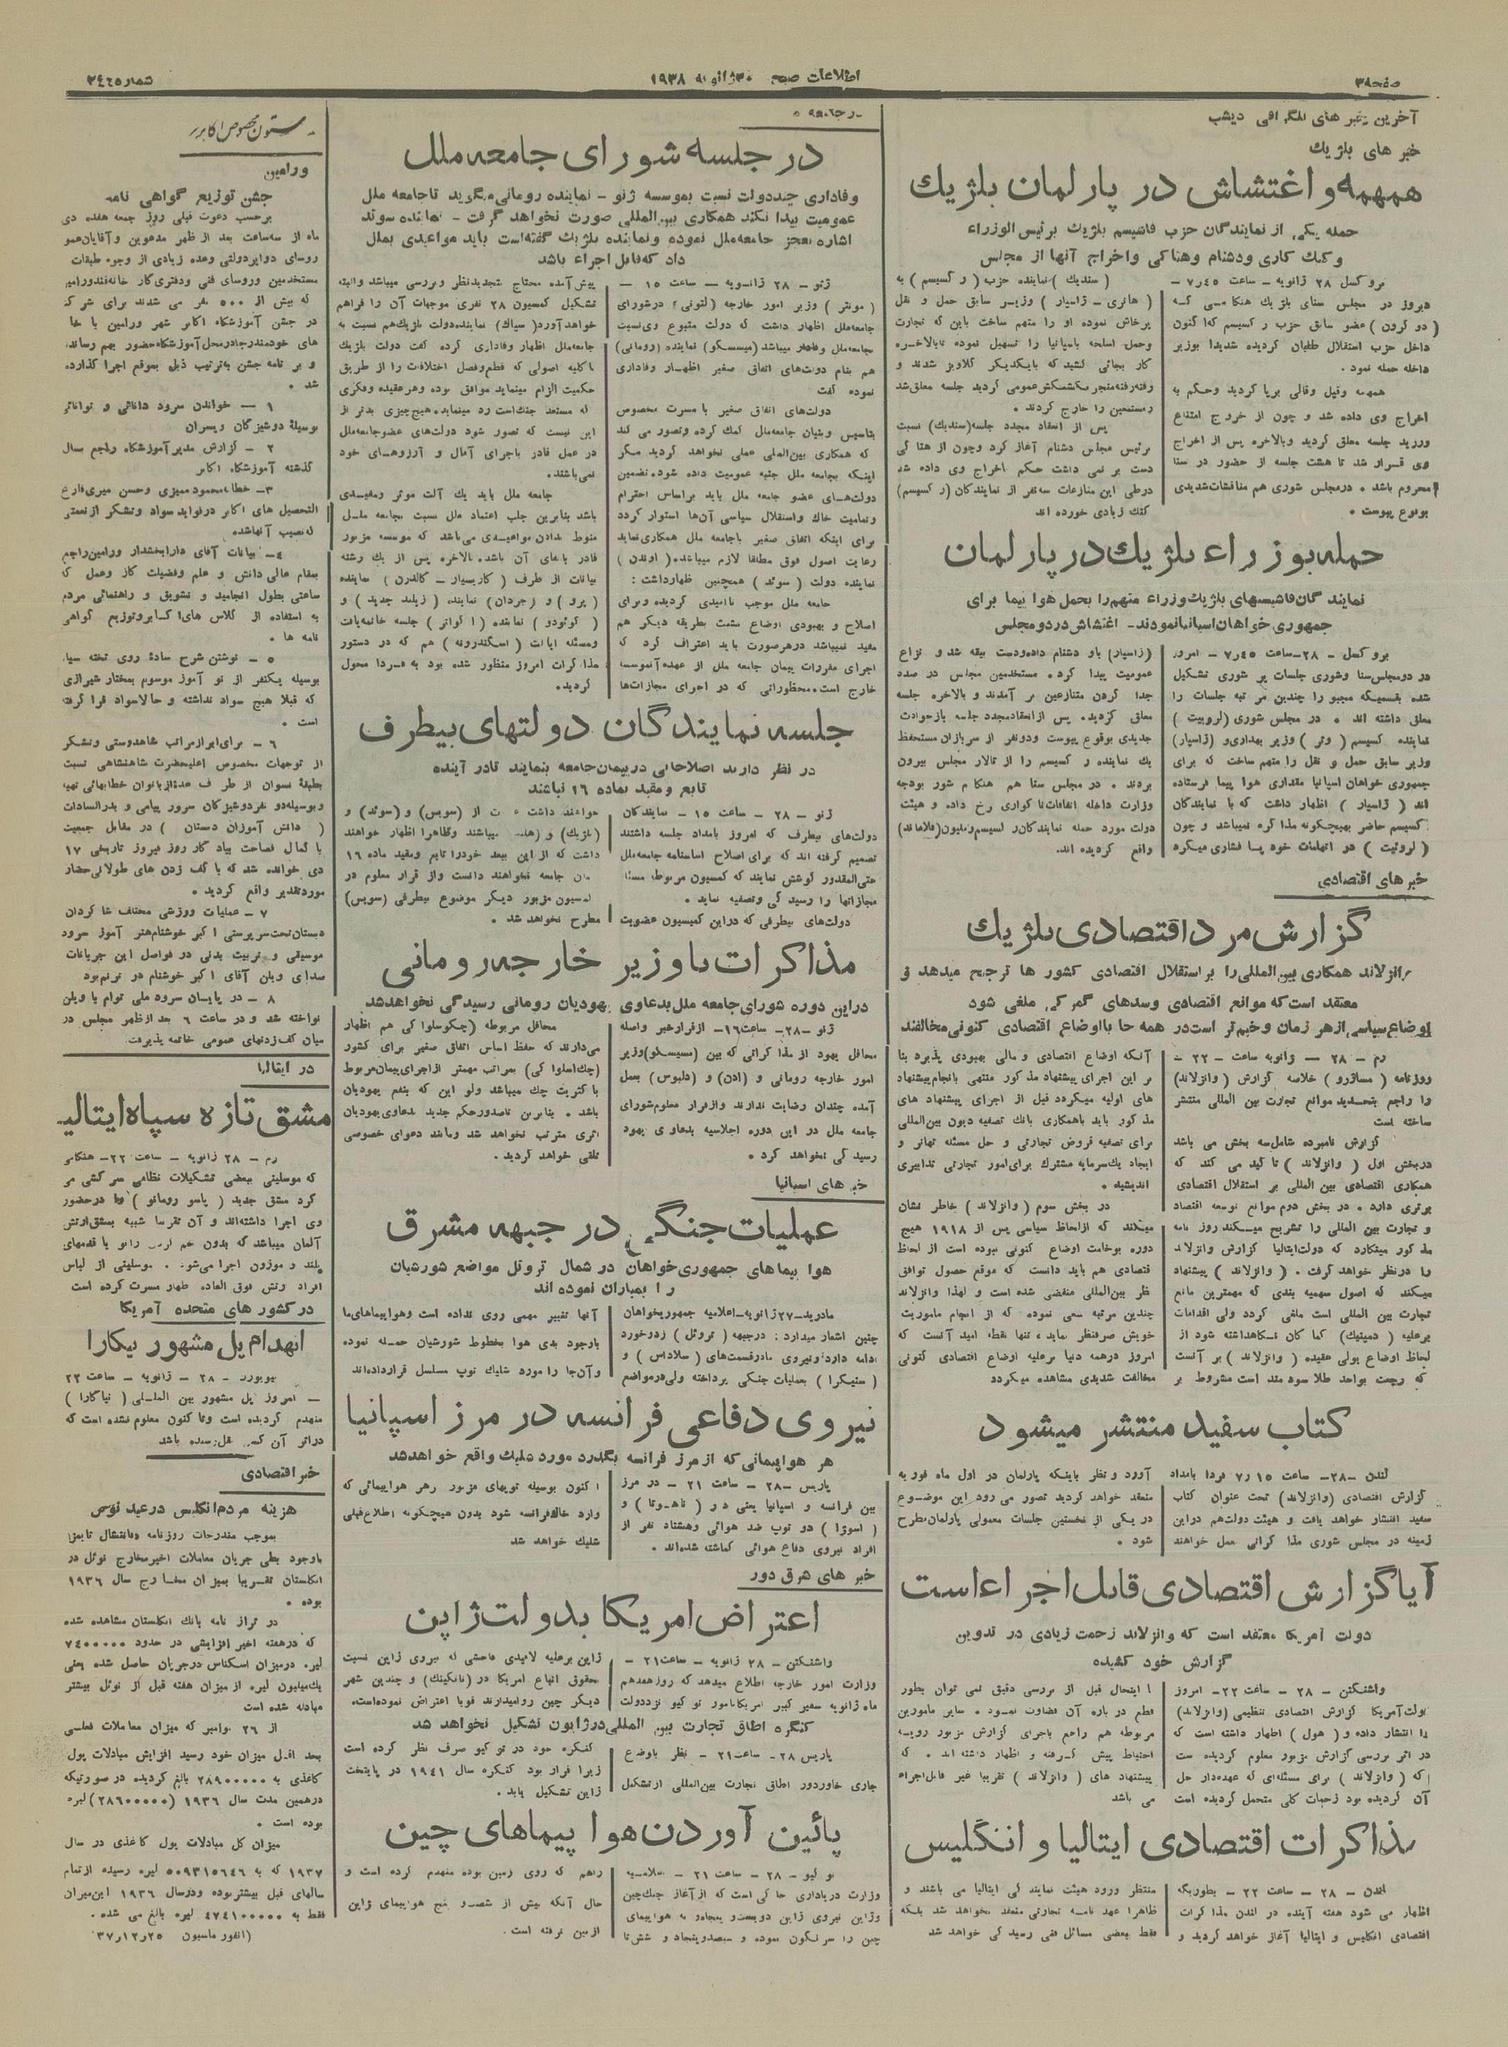 صفحه ۳
اطلاعات صبح ۳۰ ژانویه ۱۹۳۸
شماره ۳۴۶۵
آخرین خبر های تلگرافی دیشب
خبر های بلژیك
همهمه و اغتشاش در پارلمان بلژیك
حمله یکی از نمایندگان حزب فاشیسم بلژیك برئیس الوزراء
وکتك کاری ودشنام وهتاکی واخراج آنها از مجلس
بروکسل ۲۸ ژانویه – ساعت ۷ر۴۵ –
دیروز در مجلس سنای بلژیك هنگامی که
(دوگرون) عضو سابق حزب رکسیسم که اکنون
داخل حزب استقلال طلبان گردیده شدیدا بوزیر
داخله حمله نمود.
همهمه وقیل وقالی برپا گردید وحکم به
اخراج وی داده شد و چون از خروج امتناع
ورزید جلسه معلق گردید وبالاخره پس از اخراج
وی قرار شد تا هشت جلسه از حضور در سنا
محروم باشد . درمجلس شوری هم مناقشات شدیدی
بوقوع پیوست .
(سندیك) نماینده حزب (رکسیسم) به
(هانری – ژاسپار) وزیر سابق حمل و نقل
پرخاش نموده او را متهم ساخت باین که تجارت
وحمل اسلحه باسپانیا را تسهیل نموده تا بالاخره
کار بجائی کشید که بایکدیگر گلاویز شدند و
رفته رفته منجر بکشمکش عمومی گردید جلسه معلق شد
ومستمعین را خارج کردند .
پس از انعقاد مجدد جلسه (سندیك) نسبت
برئیس مجلس دشنام آغاز کرد وچون از هتاکی
دست بر نمی داشت حکم اخراج وی داده شد
درطی این منازعات سه نفر از نمایندگان (رکسیسم)
کتك زیادی خورده اند
حمله بوزراء بلژیك در پارلمان
نمایندگان فاشیستهای بلژیك وزراء متهم را بحمل هوا پیما برای
جمهوری خواهان اسپانیا نمودند – اغتشاش در دو مجلس
بروکسل – ۲۸ – ساعت ۷ر۴۵ – امروز
در دو مجلس سنا وشوری جلسات پر شوری تشکیل
شده بقسمیکه مجبور را چندین مرتبه جلسات را
معلق داشته اند . در مجلس شوری (لروییت)
نماینده کسیسم (وتر) وزیر بهداری و (ژاسپار)
وزیر سابق حمل و نقل را متهم ساخت که برای
جمهوری خواهان اسپانیا مقداری هوا پیما فرستاده
اند (ژاسپار) اظهار داشت که با نمایندگان
کسیسم حاضر بهیچگونه مذاکره نمیباشد و چون
(لروئیت) در اتهامات خود پا فشاری میکرد
(ژاسپار) باو دشنام داده ودست بیقه شد و نزاع
عمومیت پیدا کرد . مستخدمین مجلس در صدد
جدا کردن متنازعین بر آمدند و بالاخره جلسه
معلق گردید . پس از انعقاد مجدد جلسه باز حوادث
جدیدی بوقوع پیوست ودونفر از سربازان مستحفظ
یك نماینده رکسیسم را از تالار مجلس بیرون
بردند . در مجلس سنا هم هنگام شور بودجه
وزارت داخله اتفاقات ناگواری رخ داده و هیئت
دولت مورد حمله نمایندگان رکسیسم وفلیون (فلاماند)
واقع گردیده اند.
خبر های اقتصادی
گزارش مرد اقتصادی بلژیك
وانزلاند همکاری بین المللی را بر استقلال اقتصادی کشور ها ترجیح میدهد و
معتقد است که موانع اقتصادی وسدهای گمرکی ملغی شود
اوضاع سیاسی از هر زمان وخیم تر است در همه جا با اوضاع اقتصادی کنونی مخالفند
رم – ۲۸ – ژانویه ساعت – ۲۲ –
روزنامه (مساژرو) خلاصه گزارش (وانزلاند)
را راجع بتحدید موانع تجارت بین المللی منتشر
ساخته است
گزارش نامبرده شامل سه بخش می باشد
دربخش اول (وانزلاند) تاکید می کند که
همکاری اقتصادی بین المللی بر استقلال اقتصادی
برتری دارد . در بخش دوم موانع توسعه اقتصاد
و تجارت بین المللی را تشریح میکند روز نامه
مذکور مینگارد که دولت ایتالیا گزارش وانزلاند
را درنظر خواهد گرفت . (وانزلاند) پیشنهاد
میکند که اصول سهمیه بندی که مهمترین مانع
تجارت بین المللی است ملغی گردد ولی اقدامات
برعلیه (دمپینك) کما کان نگاهداشته شود از
لحاظ اوضاع پولی عقیده (وانزلاند) بر آنست
که رجعت بواحد طلا سود مند است مشروط بر
آنکه اوضاع اقتصادی و مالی بهبودی پذیرد بنا
بر این اجرای پیشنهاد مذکور منتهی بانجام پیشنهاد
های اولیه میگردد قبل از اجرای پیشنهاد های
مذکور باید باهمکاری بانك تصفیه دیون بین المللی
برای تصفیه قروض تجارتی و حل مسئله تهاتر و
ایجاد یك سرمایه مشترك برای امور تجارتی تدابیری
اندیشید .
در بخش سوم (وانزلاند) خاطر نشان
میکند که ازلحاظ سیاسی پس از ۱۹۱۸ هیچ
دوره بوخامت اوضاع کنونی نبوده است از لحاظ
اقتصادی هم باید دانست که موقع حصول توافق
نظر بین المللی منقضی شده است و لهذا وانزلاند
چندین مرتبه سعی نموده که از انجام ماموریت
خویش صرفنظر نماید ، تنها نقطه امید آنست که
امروز درهمه دنیا برعلیه اوضاع اقتصادی کنونی
مخالفت شدیدی مشاهده میگردد
کتاب سفید منتشر میشود
لندن – ۲۸ – ساعت ۷ر۱۵ فردا بامداد
گزارش اقتصادی (وانزلاند) تحت عنوان کتاب
سفید انتشار خواهد یافت و هیئت دولت هم دراین
زمینه در مجلس شوری مذاکراتی بعمل خواهند
آورد و نظر باینکه پارلمان در اول ماه فوریه
منعقد خواهد گردید تصور می رود این موضوع
در یکی از نخستین جلسات معمولی پارلمان مطرح
شود .
آیا گزارش اقتصادی قابل اجراء است
دولت آمریکا معتقد است که وانزلاند زحمت زیادی در تدوین
گزارش خود کشیده
واشنگتن – ۲۸ – ساعت ۲۲ – امروز
دولت آمریکا گزارش اقتصادی تنظیمی (وانزلاند)
را انتشار داده و (هول) اظهار داشته است که
در اثر بررسی گزارش مزبور معلوم گردیده ست
که (وانزلاند) برای مسئله ای که عهده دار حل
آن گردیده بود زحمات کلی متحمل گردیده است
اینحال قبل از بررسی دقیق نمی توان بطور
قطع در باره آن قضاوت نمود . سایر مامورین
مربوطه هم راجع باجرای گزارش مزبور رویه
احتیاط پیش گرفته و اظهار داشته اند . که
پیشنهاد های (وانزلاند) تقریبا غیر قابل اجراء
می باشد
مذاکرات اقتصادی ایتالیا و انگلیس
لندن – ۲۸ – ساعت ۲۲ – بطوریکه
اظهار می شود هفته آینده در لندن مذاکرات
اقتصادی انگلیس و ایتالیا آغاز خواهد گردید و
منتظر ورود هیئت نمایندگی ایتالیا می باشند و
ظاهرا عهد نامه تجارتی منعقد نخواهد شد بلکه
فقط بعضی مسائل فنی رسیدگی خواهد شد
در جلسه شورای جامعه ملل
وفاداری چند دولت نسبت بموسسه ژنو – نماینده رومانی میگوید تا جامعه ملل
عمومیت پیدا نکند همکاری بین المللی صورت نخواهد گرفت – نماینده سوئد
اشاره بعجز جامعه ملل نموده ونماینده بلژیك گفته است باید مواعیدی بملل
داد که قابل اجراء باشد
ژنو – ۲۸ ژانویه – ساعت ۱۵ –
(مونتر) وزیر امور خارجه (لتونی) درشورای
جامعه ملل اظهار داشت که دولت متبوع وی نسبت
بجامعه ملل وفادار میباشد (میسسکو) نماینده (رومانی)
هم بنام دولت های اتفاق صغیر اظهار وفاداری
نموده گفت
دولت های اتفاق صغیر با مسرت مخصوص
بتاسیس وبنیان جامعه ملل کمك کرده وتصور می کند
که همکاری بین المللی عملی نخواهد گردید مگر
اینکه بجامعه ملل جنبه عمومیت داده شود . تضمین
دولت های عضو جامعه ملل باید براساس احترام
وتمامیت خاك واستقلال سیاسی آن ها استوار گردد
برای اینکه اتفاق صغیر با جامعه ملل همکاری نماید
رعایت اصول فوق مطلقا لازم میباشد . (اوندن)
نماینده دولت (سوئد) همچنین اظهار داشت :
جامعه ملل موجب ناامیدی گردیده وبرای
اصلاح و بهبودی اوضاع مثبت بطریقه دیگر هم
مفید نمیباشد درهرصورت باید اعتراف کرد که
اجرای مقررات پیمان جامعه ملل از عهده آن موسسه
خارج است . محظوراتی که در اجرای مجازاتها
پیش آمده محتاج بتجدید نظر و بررسی میباشد والبته
تشکیل کمسیون ۲۸ نفری موجبات آن را فراهم
خواهد آورد (سپاك) نماینده دولت بلژیك هم نسبت به
جامعه ملل اظهار وفاداری کرده گفت دولت بلژیك
با کلیه اصولی که قطع وفصل اختلافات را از طریق
حکمیت الزام مینماید موافق بوده وهر عقیده وفکری
که مستعد جنك است رد مینماید . هیچ چیزی بدتر از
این نیست که تصور شود دولت های عضو جامعه ملل
در عمل قادر باجرای آمال و آرزوهای خود
نمی باشند.
جامعه ملل باید یك آلت موثر ومفیدی
باشد بنابرین جلب اعتماد ملل نسبت بجامعه ملل
منوط بدادن مواعیدی می باشد که موسسه مزبور
قادر باعای آن باشد . بالاخره پس از یك رشته
بیانات از طرف (کارسیار – کالدرن) نماینده
(پرو) و (جردان) نماینده (زیلند جدید) و
(کوئودو) نماینده (اکواتر) جلسه خاتمه یافت
ومسئله ایالت (اسکندرونه) هم که در دستور
مذاکرات امروز منظور شده بود به فردا محول
گردید.
جلسه نمایندگان دولتهای بیطرف
در نظر دارند اصلاحاتی در پیمان جامعه بنمایند تا در آینده
تابع و مقید بماده ۱۶ نباشند
ژنو – ۲۸ – ساعت ۱۵ – نمایندگان
دولت های بیطرف که امروز بامداد جلسه داشتند
تصمیم گرفته اند که برای اصلاح اساسنامه جامعه ملل
حتی المقدور کوشش نمایند که کمسیون مربوط مسئله
مجازاتها را رسیدگی وتصفیه نماید .
دولت های بیطرفی که در این کمیسیون عضویت
خواهند داشت از (سویس) و (سوئد) و
(بلژیك) و میباشند وظاهرا اظهار خواهند
داشت که از این ببعد خود را تابع ومقید ماده ۱۶
جامعه نخواهند دانست واز قرار معلوم در
کمسیون مزبور دیگر موضوع بیطرفی (سویس)
مطرح نخواهد شد .
مذاکرات با وزیر خارجه رومانی
در این دوره شورای جامعه ملل بدعاوی یهودیان رومانی رسیدگی نخواهد شد
ژنو – ۲۸ – ساعت ۱۶ – از قرار خبر واصله
محافل یهود از مذاکراتی که بین (میسسکو) وزیر
امور خارجه رومانی و (ادن) و (دلبوس) بعمل
آمده چندان رضایت ندارند وازقرار معلوم شورای
جامعه ملل در این دوره اجلاسیه بدعاوی یهود
رسیدگی نخواهد کرد .
محافل مربوطه (چکوسلواکی) هم اظهار
می دارند که حفظ اساس اتفاق صغیر برای کشور
(چك اسلواکی) بمراتب مهمتر از اجرای پیمان مربوط
باکثریت چك میباشد ولو این که بنفع یهودیان
باشد . بنابرین تا صدور حکم جدید بدعاوی یهودیان
اثری مترتب نخواهد شد ومانند دعوای خصوصی
تلقی خواهد گردید .
خبر های اسپانیا
عملیات جنگی در جبهه مشرق
هوا پیماهای جمهوری خواهان در شمال تروئل مواضع شورشیان
را بمباران نموده اند
مادرید – ۲۷ ژانویه – اعلامیه جمهوریخواهان
چنین اشعار میدارد : درجبهه (تروئل) زدوخورد
ادامه دارد ونیروی مادر قسمت های (سلاداس) و
(سنیگرا) بعملیات جنگی پرداخته ولی در مواضع
آنها تغییر مهمی روی نداده است وهواپیماهای ما
باوجود بدی هوا بخطوط شورشیان حمله نموده
وآن جا را مورد شلیك توپ مسلسل قرار داده اند
نیروی دفاعی فرانسه در مرز اسپانیا
هر هواپیمائی که از مرز فرانسه بگذرد مورد شلیك واقع خواهد شد
پاریس – ۲۸ – ساعت ۲۱ – در مرز
بین فرانسه و اسپانیا یعنی در () و
() دو توپ ضد هوائی وهشتاد نفر از
افراد نیروی دفاع هوائی گماشته شده اند .
اکنون بوسیله توپهای مزبور هر هواپیمائی که
وارد خاك فرانسه شود بدون هیچگونه اطلاع قبلی
شلیك خواهد شد
خبر های شرق دور
اعتراض امریکا بدولت ژاپن
واشنگتن – ۲۸ ژانویه – ساعت ۲۱ –
وزارت امور خارجه اطلاع میدهد که روز هفدهم
ماه ژانویه سفیر کبیر امریکا مامور توکیو نزد دولت
ژاپن برعلیه لاقیدی فاحشی که نیروی ژاپن نسبت
بحقوق اتباع امریکا در (نانکینك) و چندین شهر
دیگر چین روا میدارند قویا اعتراض نموده است.
کنگره اطاق تجارت بین المللی در ژاپون تشکیل نخواهد شد
پاریس ۲۸ – ساعت ۲۱ – نظر باوضاع
جاری خاور دور اطاق تجارت بین المللی از تشکیل
کنگره خود در توکیو صرف نظر کرده است
زیرا قرار بود کنگره سال ۱۹۴۱ در پایتخت
ژاپن تشکیل یابد .
پائین آوردن هوا پیماهای چین
توکیو – ۲۸ – ساعت ۲۱ – اعلامیه
وزارت دریاداری حاکی است که از آغاز جنك چین
وژاپن نیروی ژاپن دویست وپنجاه و هواپیمای
چین را سرنگون نموده و سیصد وپنجاه و شش تا
راهم که روی زمین بوده منهدم کرده است و
حال آنکه بیش از شصت و پنج هواپیمای ژاپن
از بین نرفته است .
ستون مخصوص اکابر
ورامین
جشن توزیع گواهی نامه
برحسب دعوت قبلی روز جمعه هفده دی
ماه از سه ساعت بعد از ظهر مدعوین و آقایان عموم
روسای دوایر دولتی وعده زیادی از وجوه طبقات
مستخدمین وروسای فنی ودفتری کارخانه قند ورامین
که بیش از ۵۰۰ نفر می شدند برای شرکت
در جشن آموزشگاه اکابر شهر ورامین با خانم
های خود مندرجا در محل آموزشگاه حضور بهم رسانده
و بر نامه جشن به ترتیب ذیل بموقع اجرا گذارده
شد .
۱ – خواندن سرود دانائی و توانائی
بوسیلهٔ دوشیزگان وپسران
۲ – گزارش مدیر آموزشگاه راجع بسال
گذشته آموزشگاه اکابر
۳ – خطابه محمود ممیزی وحسن میری فارغ
التحصیل های اکابر در فواید سواد وتشکر از نعمتی
که نصیب آنها شده
۴ – بیانات آقای دارا بخشدار ورامین راجع
بمقام عالی دانش و علم وفضیلت کار وعمل که
ساعتی بطول انجامید و تشویق و راهنمائی مردم
به استفاده از کلاس های اکابر وتوزیع گواهی
نامه ها .
۵ – نوشتن شرح سادهٔ روی تخته سیاه
بوسیله یکنفر از نو آموز موسوم بمختار شیرازی
که قبلا هیچ سواد نداشته و حالا سواد فرا گرفته
است .
۶ – برای ابراز مراتب شاهدوستی وتشکر
از توجهات مخصوص اعلیحضرت شاهنشاهی نسبت
بطبقهٔ نسوان از طرف عدهٔ از بانوان خطابهائی تهیه
وبوسیله دو نفر دوشیزگان سرور پیامی و بدرالسادات
(دانش آموزان دبستان) در مقابل جمعیت
با کمال فصاحت بیاد گار روز فیروز تاریخی ۱۷
دی خوانده شد که با کف زدن های طولانی حضار
مورد تقدیر واقع گردید .
۷ – عملیات ورزشی مختلف شاگردان
دبستان تحت سرپرستی اکبر خوشنام هنر آموز سرود
موسیقی و تربیت بدنی در فواصل این جریانات
صدای ویلن آقای اکبر خوشنام در ترنم بود
۸ – در پایان سرود ملی توام با ویلن
نواخته شد و در ساعت ۶ بعد از ظهر مجلس در
میان کف زدنهای عمومی خاتمه پذیرفت.
در ایتالیا
مشق تازه سپاه ایتالیا
رم – ۲۸ ژانویه – ساعت ۲۲ – هنگامی
که موسلینی ببعضی تشکیلات نظامی سرکشی می
کرد مشق جدید (پاسو رومانو) را در حضور
وی اجرا داشته اند و آن تقریبا شبیه بمشق ارتش
آلمان میباشد که بدون خم کردن زانو با قدمهای
بلند و موزون اجرا میشود . موسلینی از لباس
افراد ارتش فوق العاده اظهار مسرت کرده است
در کشور های متحده آمریکا
انهدام پل مشهور نیگارا
نیویورك – ۲۸ – ژانویه – ساعت ۲۲
– امروز پل مشهور بین المللی (نیاگارا)
منهدم گردیده است وتا کنون معلوم نشده است که
در اثر آن کسی بقتل رسیده باشد
خبر اقتصادی
هزینه مردم انگلیس در عید نوئل
بموجب مندرجات روزنامه «فاینانشال تایمز»
باوجود بطی جریان معاملات اخیر مخارج نوئل در
انگلستان تقریبا بمیزان مخارج سال ۱۹۳۶
بوده .
در تراز نامه بانك انگلستان مشاهده شده
که درهفته اخیر افزایشی در حدود ۷۴۰۰۰۰۰
لیره درمیزان اسکناس درجریان حاصل شده یعنی
یك میلیون لیره از میزان هفته قبل از نوئل بیشتر
مبادله شده است
از ۲۶ نوامبر که میزان معاملات فعلی
بحد اقل میزان خود رسید افزایش مبادلات پول
کاغذی به ۲۸۹۰۰۰۰۰ بالغ گردیده در صورتیکه
درهمین مدت سال ۱۹۳۶ (۲۸۶۰۰۰۰۰) لیره
بوده است .
میزان کل مبادلات پول کاغذی در سال
۱۹۳۷ که به ۵۰۹۳۱۵۶۴۶ لیره رسیده از تمام
سالهای قبل بیشتر بوده ودرسال ۱۹۳۶ این میزان
فقط به ۴۷۴۱۰۰۰۰۰ لیره بالغ می شده .
(انفورماسیون ۲۵ر۱۲ر۳۷)